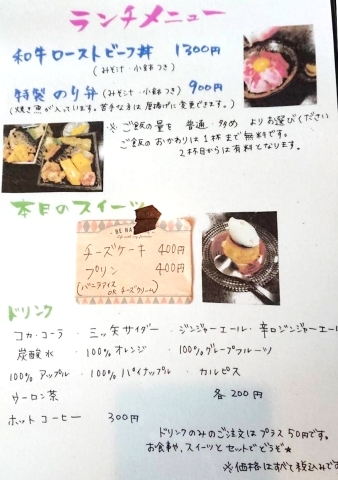 ランチメニュー
和牛ローストビーフ丼 1300円
(みそ汁・小鉢つき)
特製 のり弁 (みそ汁・小鉢つき) 900円
(焼き魚が入っています。苦手な方は 厚揚げに変更できます。)
※ ご飯の量を 普通・多め よりお選びください
ご飯のおかわりは1杯まで無料です。
2杯目からは有料となります。
本日のスイーツ
チーズケーキ 400円
プリン 400円
(バニラアイス
OR チーズクリーム)
ドリンク
コカ・コーラ ・ 三ツ矢サイダー ・ ジンジャーエール・辛口ジンジャーエール
炭酸水 ・ 100%オレンジ ・ 100%グレープフルーツ
100%アップル ・ 100%パイナップル ・ カルピス
ウーロン茶 各200円
ホットコーヒー 300円
ドリンクのみのご注文は プラス50円です。
お食事や、スイーツと セットでどうぞ★
※価格はすべて税込みです